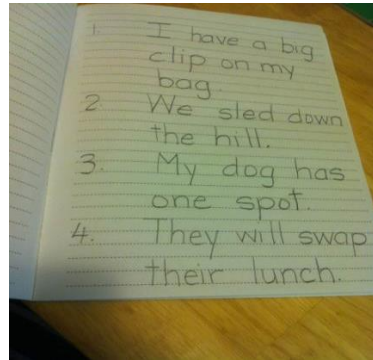 1. I have a big
clip on my
bag.
2. We sled down
the hill.
3. My dog has
one spot.
4. They will swap
their lunch.